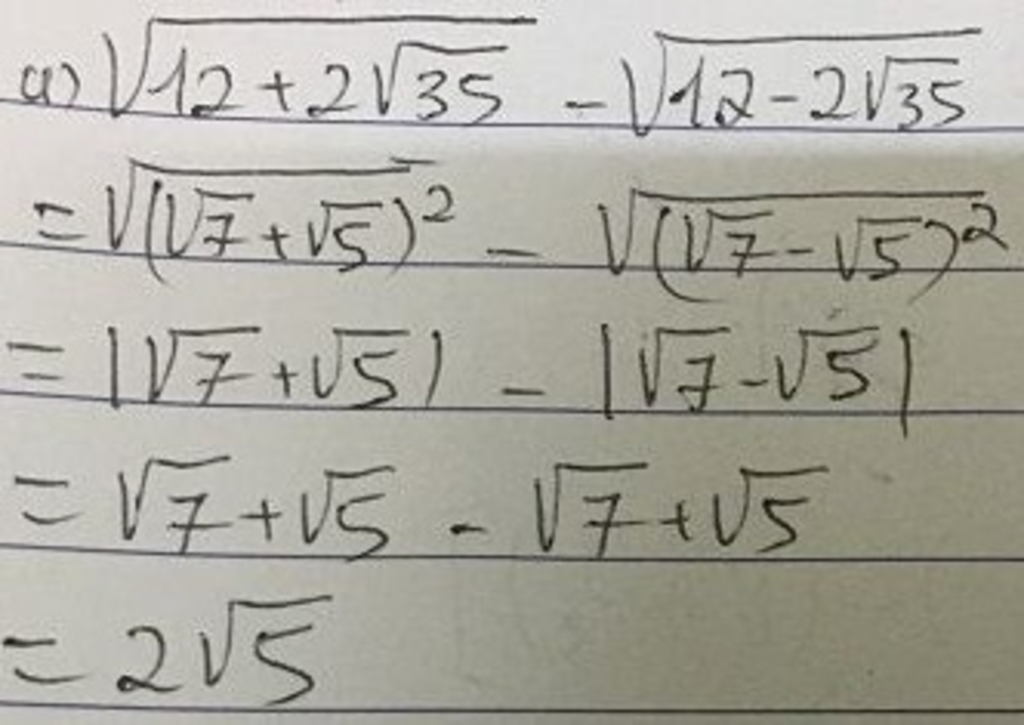 a) √(12 + 2√35) - √(12 - 2√35)
= √((√7 + √5)²) - √((√7 - √5)²)
= |√7 + √5| - |√7 - √5|
= √7 + √5 - √7 + √5
= 2√5